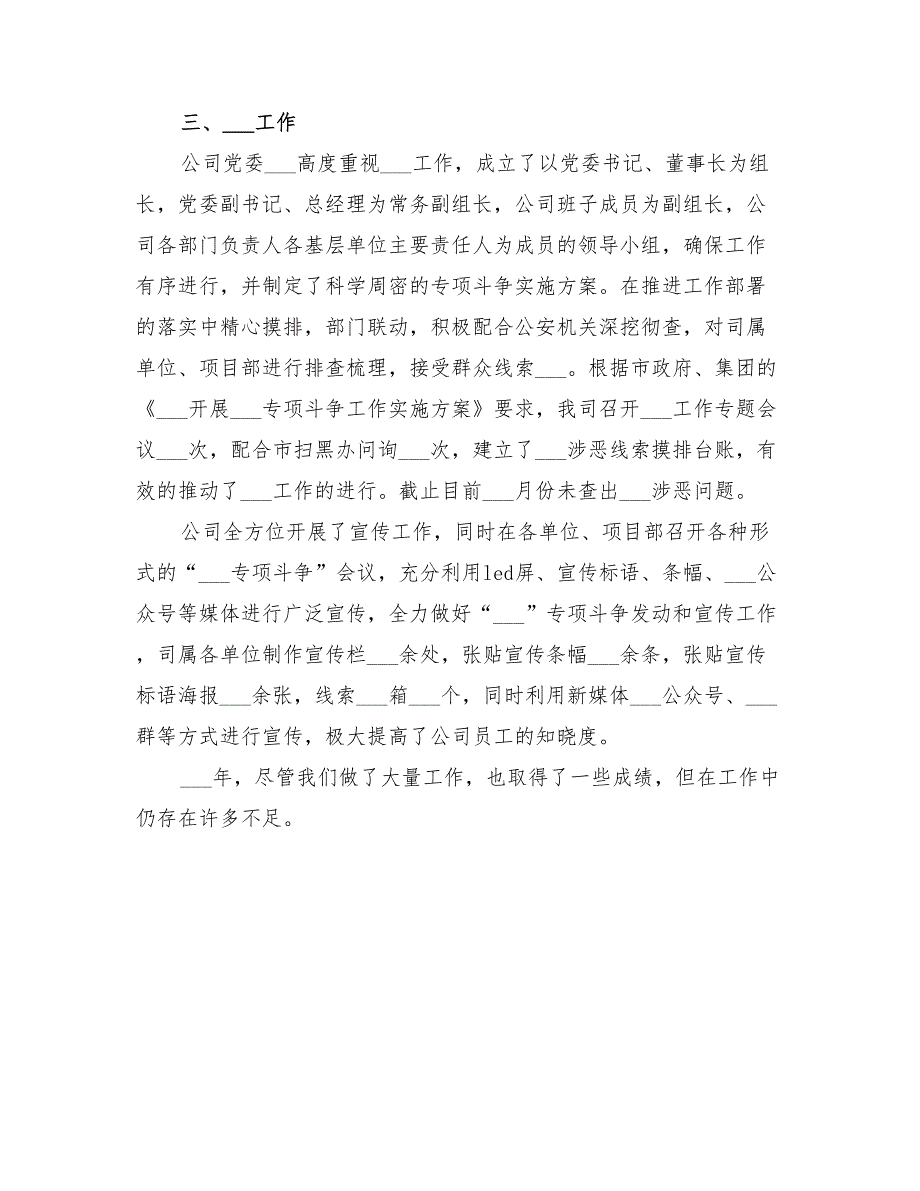 三、___工作
公司党委___高度重视___工作，成立了以党委书记、董事长为组
长，党委副书记、总经理为常务副组长，公司班子成员为副组长，公
司各部门负责人各基层单位主要责任人为成员的领导小组，确保工作
有序进行，并制定了科学周密的专项斗争实施方案。在推进工作部署
的落实中精心摸排，部门联动，积极配合公安机关深挖彻查，对司属
单位、项目部进行排查梳理，接受群众线索___。根据市政府、集团的
《___开展___专项斗争工作实施方案》要求，我司召开___工作专题会
议___次，配合市扫黑办问询___次，建立了___涉恶线索摸排台账，有
效的推动了___工作的进行。截止目前___月份未查出___涉恶问题。
公司全方位开展了宣传工作，同时在各单位、项目部召开各种形
式的“___专项斗争”会议，充分利用led屏、宣传标语、条幅、___公
众号等媒体进行广泛宣传，全力做好“___”专项斗争发动和宣传工作
，司属各单位制作宣传栏___余处，张贴宣传条幅___余条，张贴宣传
标语海报___余张，线索___箱___个，同时利用新媒体___公众号、___
群等方式进行宣传，极大提高了公司员工的知晓度。
___年，尽管我们做了大量工作，也取得了一些成绩，但在工作中
仍存在许多不足。